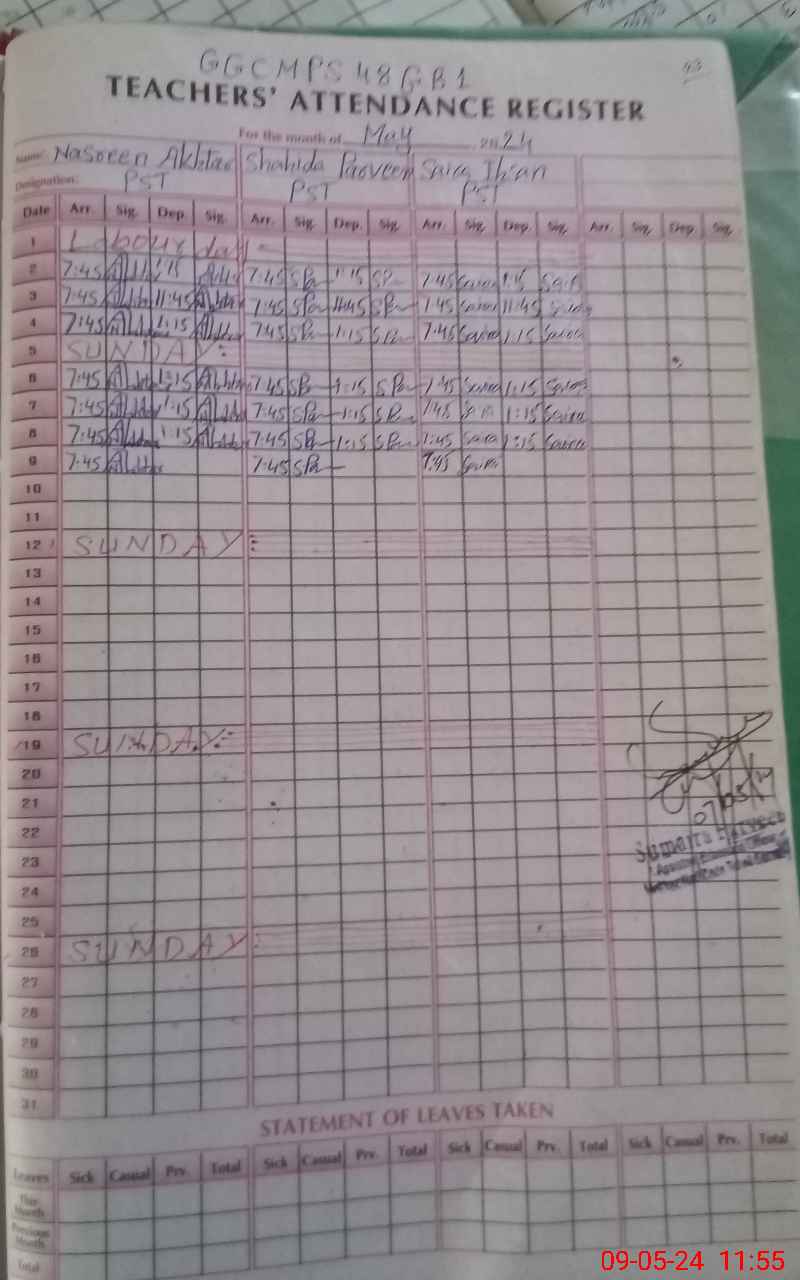 43
GGCMPS 48 GB1
TEACHERS' ATTENDANCE REGISTER
For the month of May 2024
Name: Nasreen Akhtar Shahida Parveen Saira Ihsan
Designation: PST PST PST
Date Arr. Sig. Dep. Sig. Arr. Sig. Dep. Sig. Arr. Sig. Dep. Sig. Arr. Sig. Dep. Sig.
1 Labour day
2 7:45 1:15 7:45 SPa 1:15 SPa 7:45 Saira 1:15 Saira
3 7:45 11:45 7:45 SPa 11:45 SPa 7:45 Saira 11:45 Saira
4 7:45 1:15 7:45 SPa 1:15 SPa 7:45 Saira 1:15 Saira
5 SUNDAY:
6 7:45 1:15 7:45 SPa 1:15 SPa 7:45 Saira 1:15 Saira
7 7:45 1:15 7:45 SPa 1:15 SPa 7:45 1:15 Saira
8 7:45 1:15 7:45 SPa 1:15 SPa 7:45 Saira 1:15 Saira
9 7:45 7:45 SPa 7:45 Saira
10
11
12 SUNDAY:
13
14
15
16
17
18
19 SUNDAY:-
20
21
22 07/05/24
23 Sumaira Parveen
24
25
26 SUNDAY:
27
28
29
30
31
STATEMENT OF LEAVES TAKEN
Leaves Sick Casual Prv. Total Sick Casual Prv. Total Sick Casual Prv. Total Sick Casual Prv. Total
This Month
Previous Month
Total
09-05-24 11:55